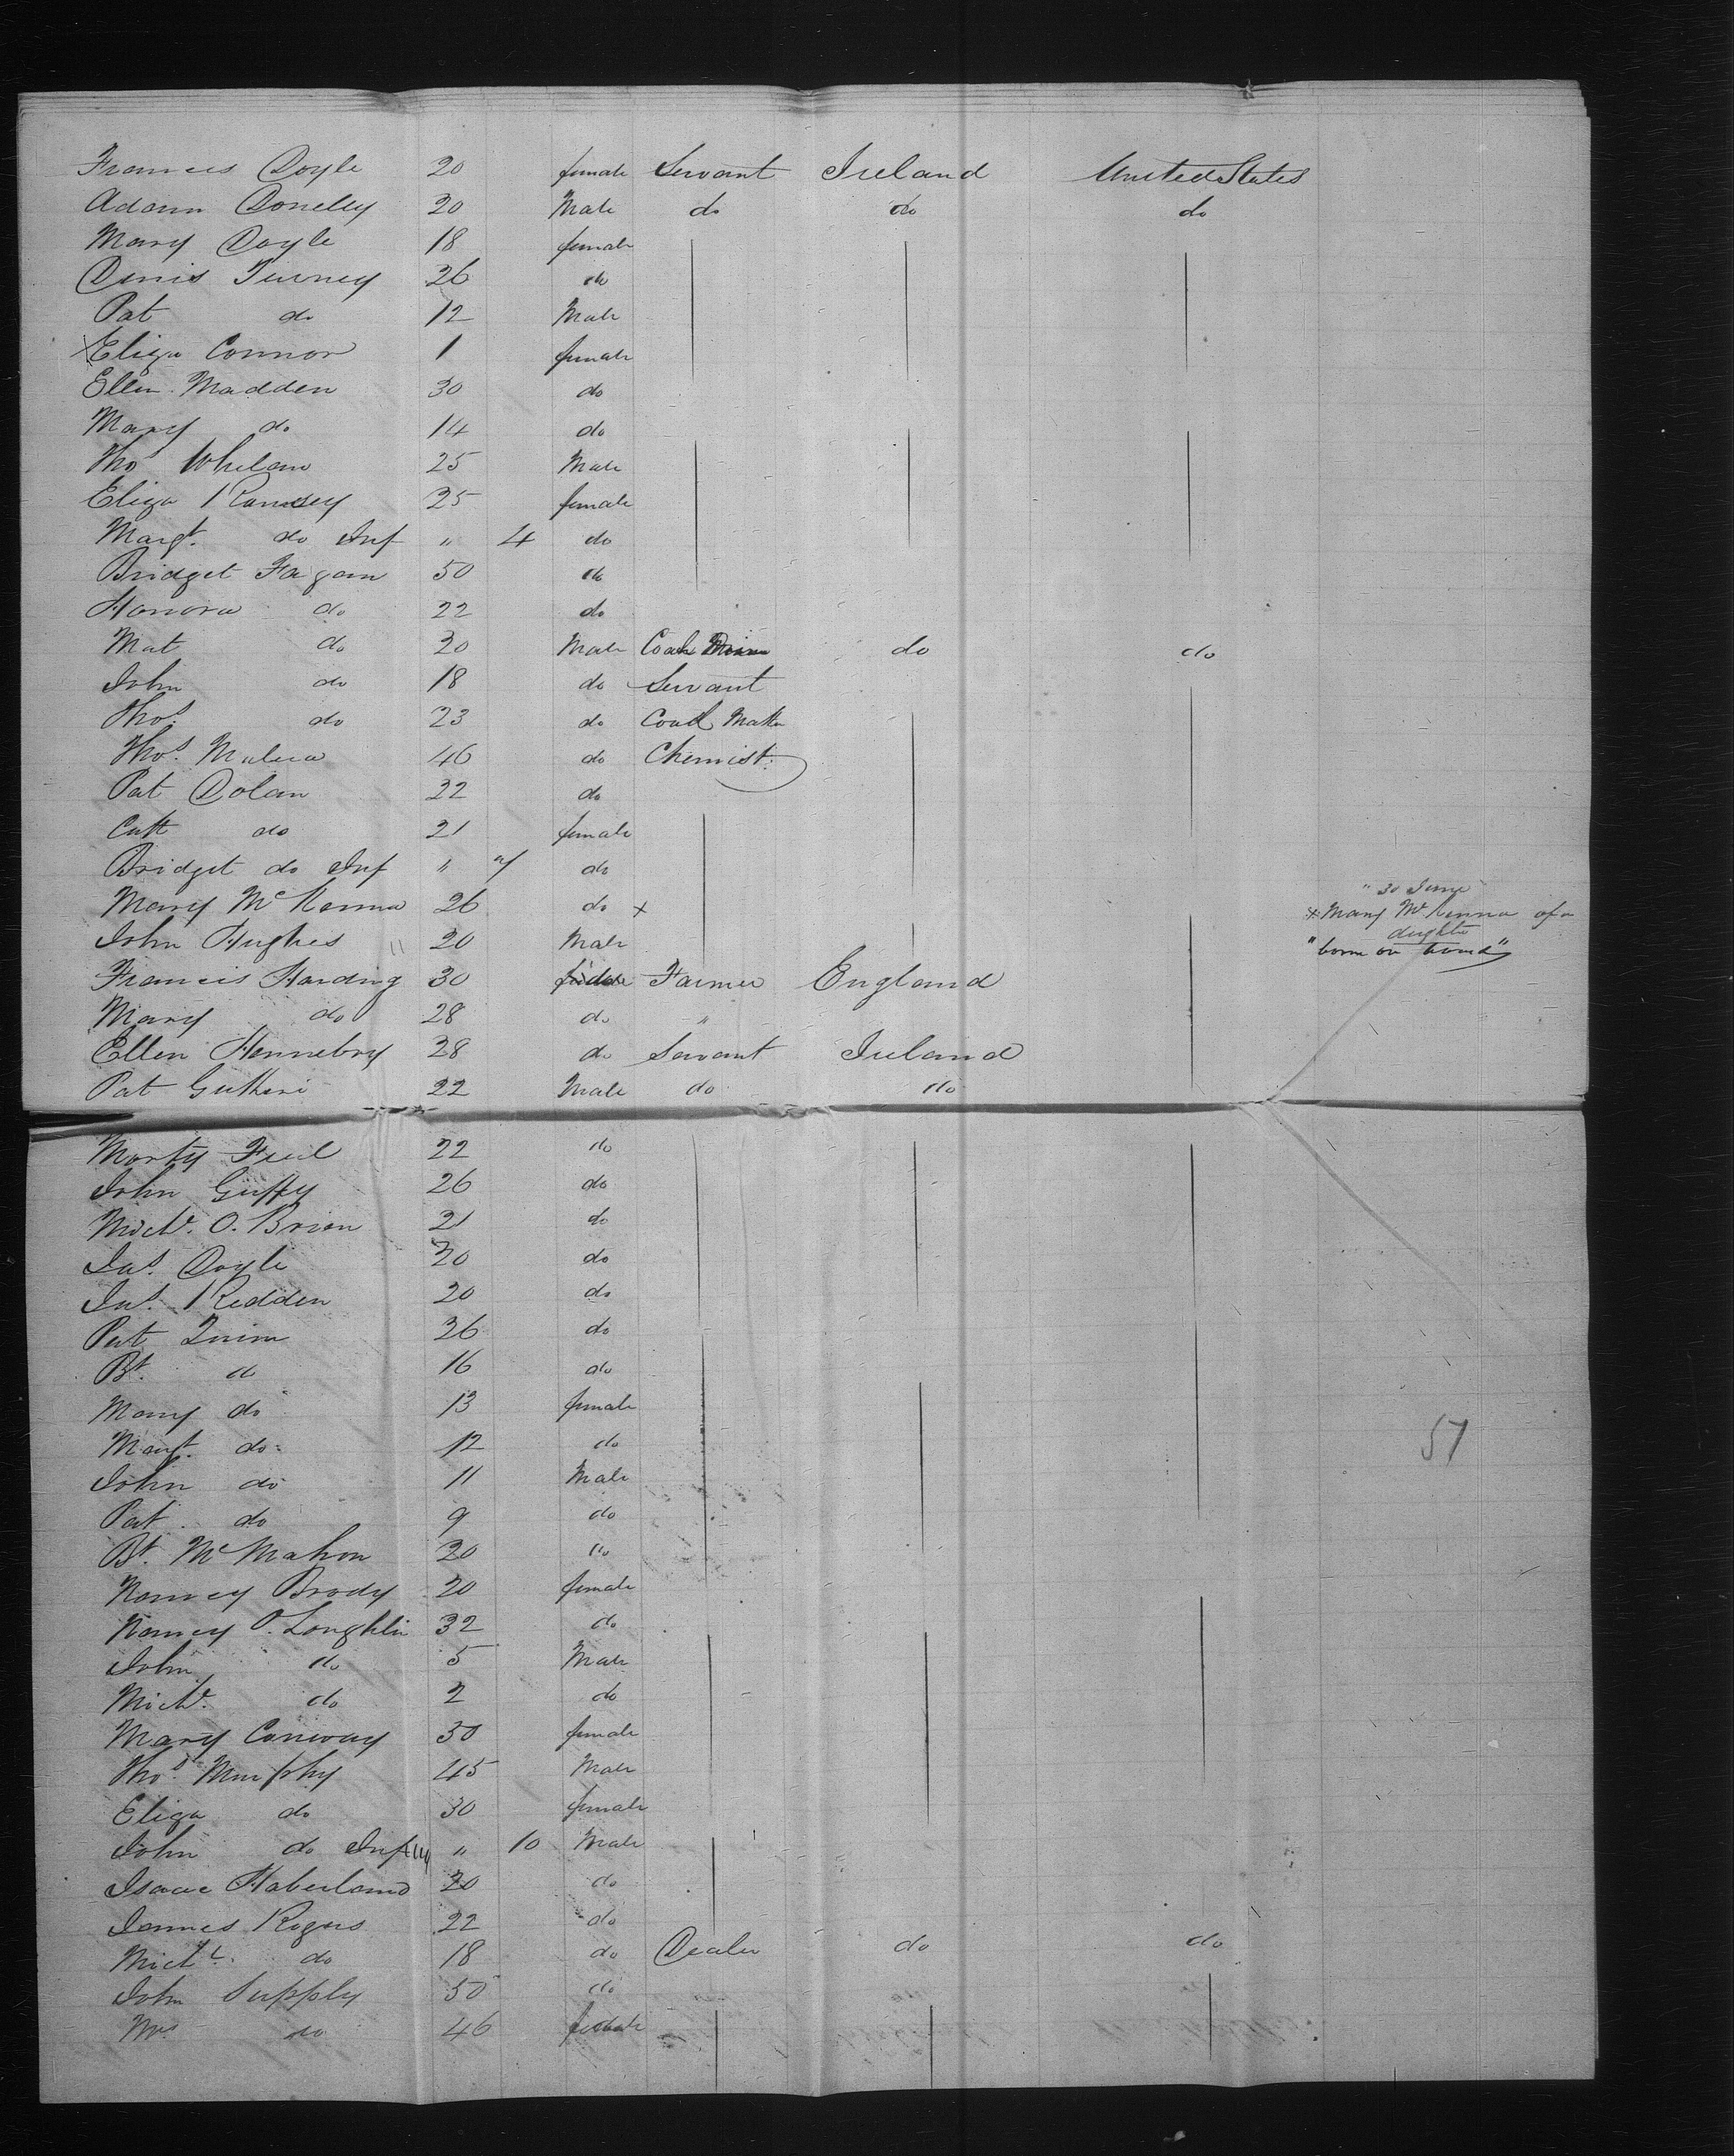 Frances Doyle 20 female Servant Ireland United States
Adam Donelly 20 Male do do do
Mary Doyle 18 female
Denis Turney 26 do
Pat do 12 Male
X Eliza Connor 1 female
Ellen Madden 30 do
Mary do 14 do
Thos Whelan 25 Male
Eliza Ramsey 25 female
Margt. do Inf " 4 do
Bridget Fagan 50 do
Honora do 22 do
Mat do 20 Male Coach do do
John do 18 do Servant
Thos. do 23 do Coach Maker
Thos. 46 do Chemist
Pat Dolan 22 do
Cath do 21 female
Bridget do Inf " do
Mary McKenna 26 do x
" 30 June
x Mary McKenna of a
daughter
"born on board"
John Hughes " 20 Male
Francis Harding 30 Farmer England
Mary do 28 do "
Ellen Hennebry 28 do Servant Ireland
Pat Gutheri 22 Male do do
Morty Feil 22 do
John Guffy 26 do
Michl. O. Brien 21 do
Jas. Doyle 20 do
Jas. Redden 20 do
Pat Quinn 26 do
Bt. do 16 do
Mary do 13 female
Margt. do 12 do
John do 11 Male
Pat do 9 do
Bt. McMahon 20 do
Nancy Brody 20 female
Nancy O.Loughlin 32 do
John do 5 Male
Michl. do 2 do
Mary Conway 30 female
Thos. Murphy 45 Male
Eliza do 30 female
John do Inf " 10 Male
Isaac Haberland 20 do
James Rogers 22 do
Michl. do 18 do Dealer do do
John Supply 50 do
Mrs do 46 female
57